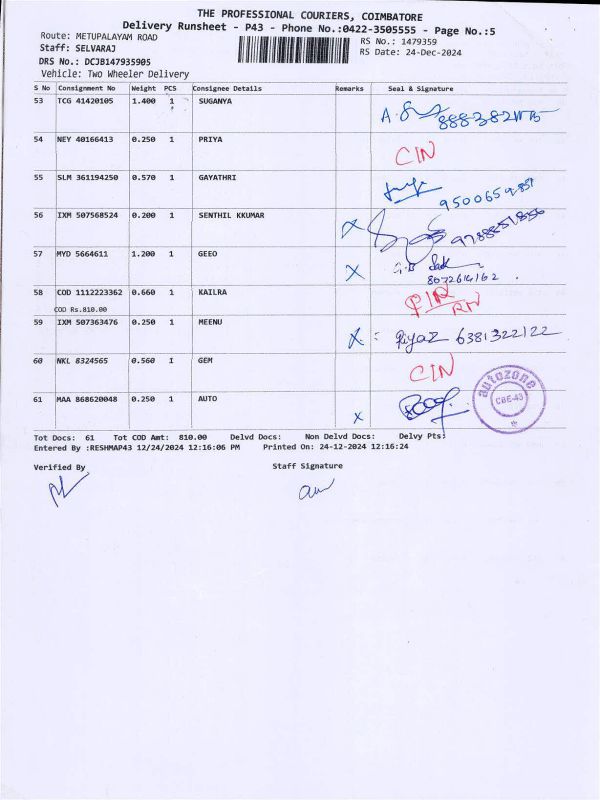 THE PROFESSIONAL COURIERS, COIMBATORE
Delivery Runsheet - P43 - Phone No.:0422-3505555 - Page No.:5
Route: METUPALAYAM ROAD
RS No.: 1479359
Staff: SELVARAJ
RS Date: 24-Dec-2024
DRS No.: DCJB147935905
Vehicle: Two Wheeler Delivery
S No Consignment No Weight PCS Consignee Details Remarks Seal & Signature
53 TCG 41420105 1.400 1 SUGANYA
54 NEY 40166413 0.250 1 PRIYA CIN
55 SLM 361194250 0.570 1 GAYATHRI
56 IXM 507568524 0.200 1 SENTHIL KKUMAR X
57 MYD 5664611 1.200 1 GEEO X
8072614162
58 COD 1112223362 0.660 1 KAILRA
COD Rs.810.00
59 IXM 507363476 0.250 1 MEENU X : Riyaz 6381322122
60 NKL 8324565 0.560 1 GEM CIN
61 MAA 868620048 0.250 1 AUTO X
autozone
CBE-43
Tot Docs: 61 Tot COD Amt: 810.00 Delvd Docs: Non Delvd Docs: Delvy Pts:
Entered By :RESHMAP43 12/24/2024 12:16:06 PM Printed On: 24-12-2024 12:16:24
Verified By Staff Signature